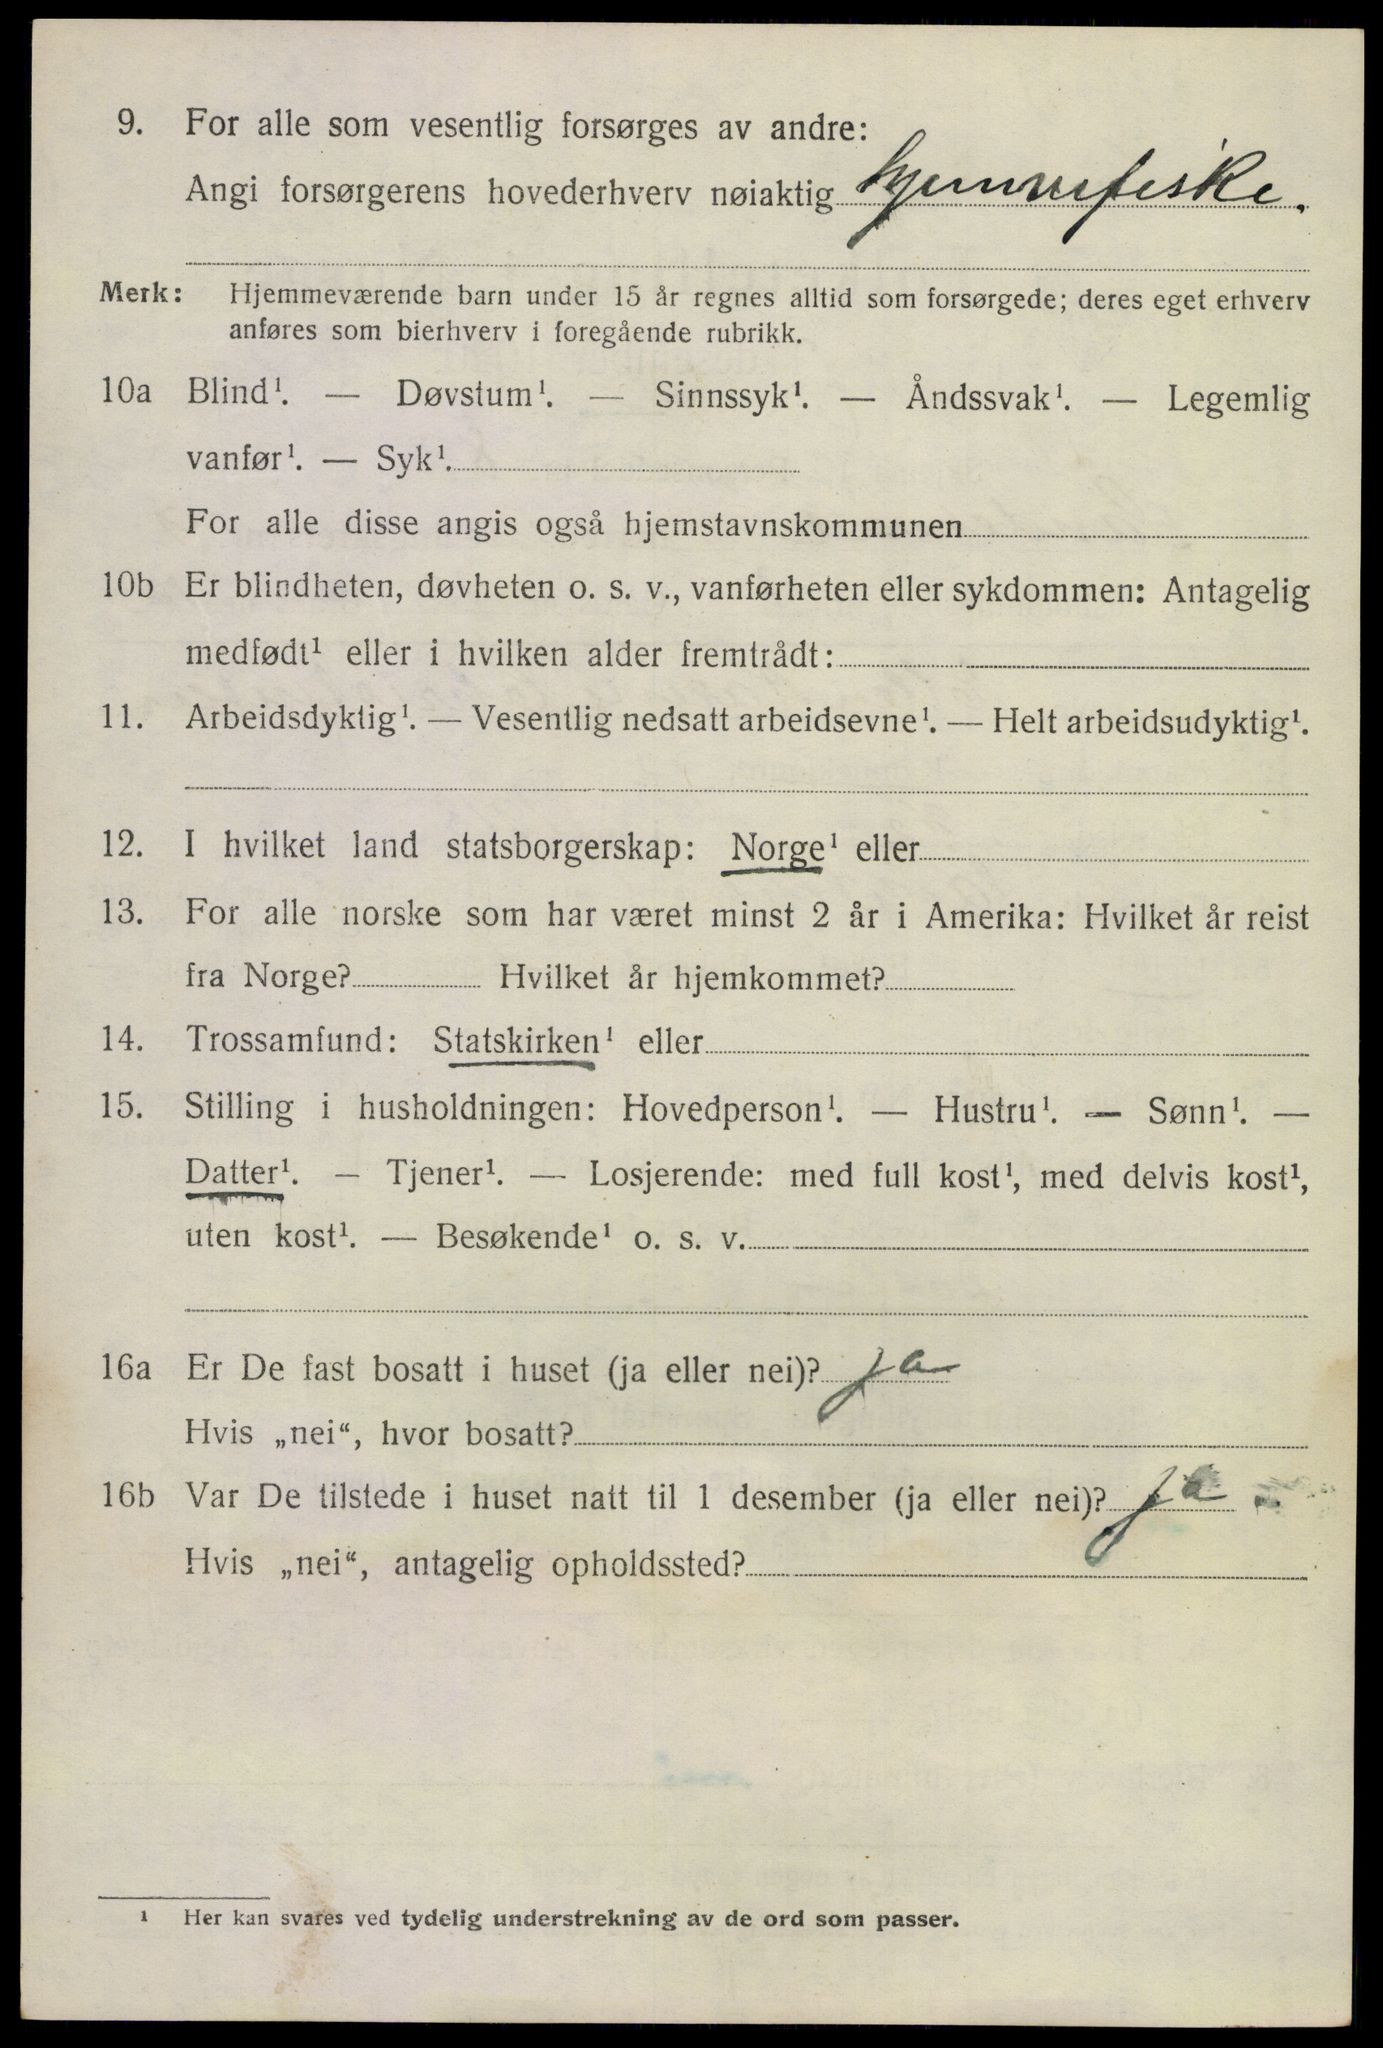 9. For alle som vesentlig forsørges av andre:
Angi forsørgerens hovederhverv nøiaktig hjemmefiske.
Merk: Hjemmeværende barn under 15 år regnes alltid som forsørgede; deres eget erhverv
anføres som bierhverv i foregående rubrikk.
10a Blind¹. — Døvstum¹. — Sinnssyk¹. — Åndssvak¹. — Legemlig
vanfør¹. — Syk¹.
For alle disse angis også hjemstavnskommunen
10b Er blindheten, døvheten o. s. v., vanførheten eller sykdommen: Antagelig
medfødt¹ eller i hvilken alder fremtrådt:
11. Arbeidsdyktig¹. — Vesentlig nedsatt arbeidsevne¹. — Helt arbeidsudyktig¹.
12. I hvilket land statsborgerskap: Norge¹ eller
13. For alle norske som har været minst 2 år i Amerika: Hvilket år reist
fra Norge? Hvilket år hjemkommet?
14. Trossamfund: Statskirken¹ eller
15. Stilling i husholdningen: Hovedperson¹. — Hustru¹. — Sønn¹. —
Datter¹. — Tjener¹. — Losjerende: med full kost¹, med delvis kost¹,
uten kost¹. — Besøkende¹ o. s. v.
16a Er De fast bosatt i huset (ja eller nei)? ja
Hvis „nei“, hvor bosatt?
16b Var De tilstede i huset natt til 1 desember (ja eller nei)? ja
Hvis „nei“, antagelig opholdssted?
¹ Her kan svares ved tydelig understrekning av de ord som passer.